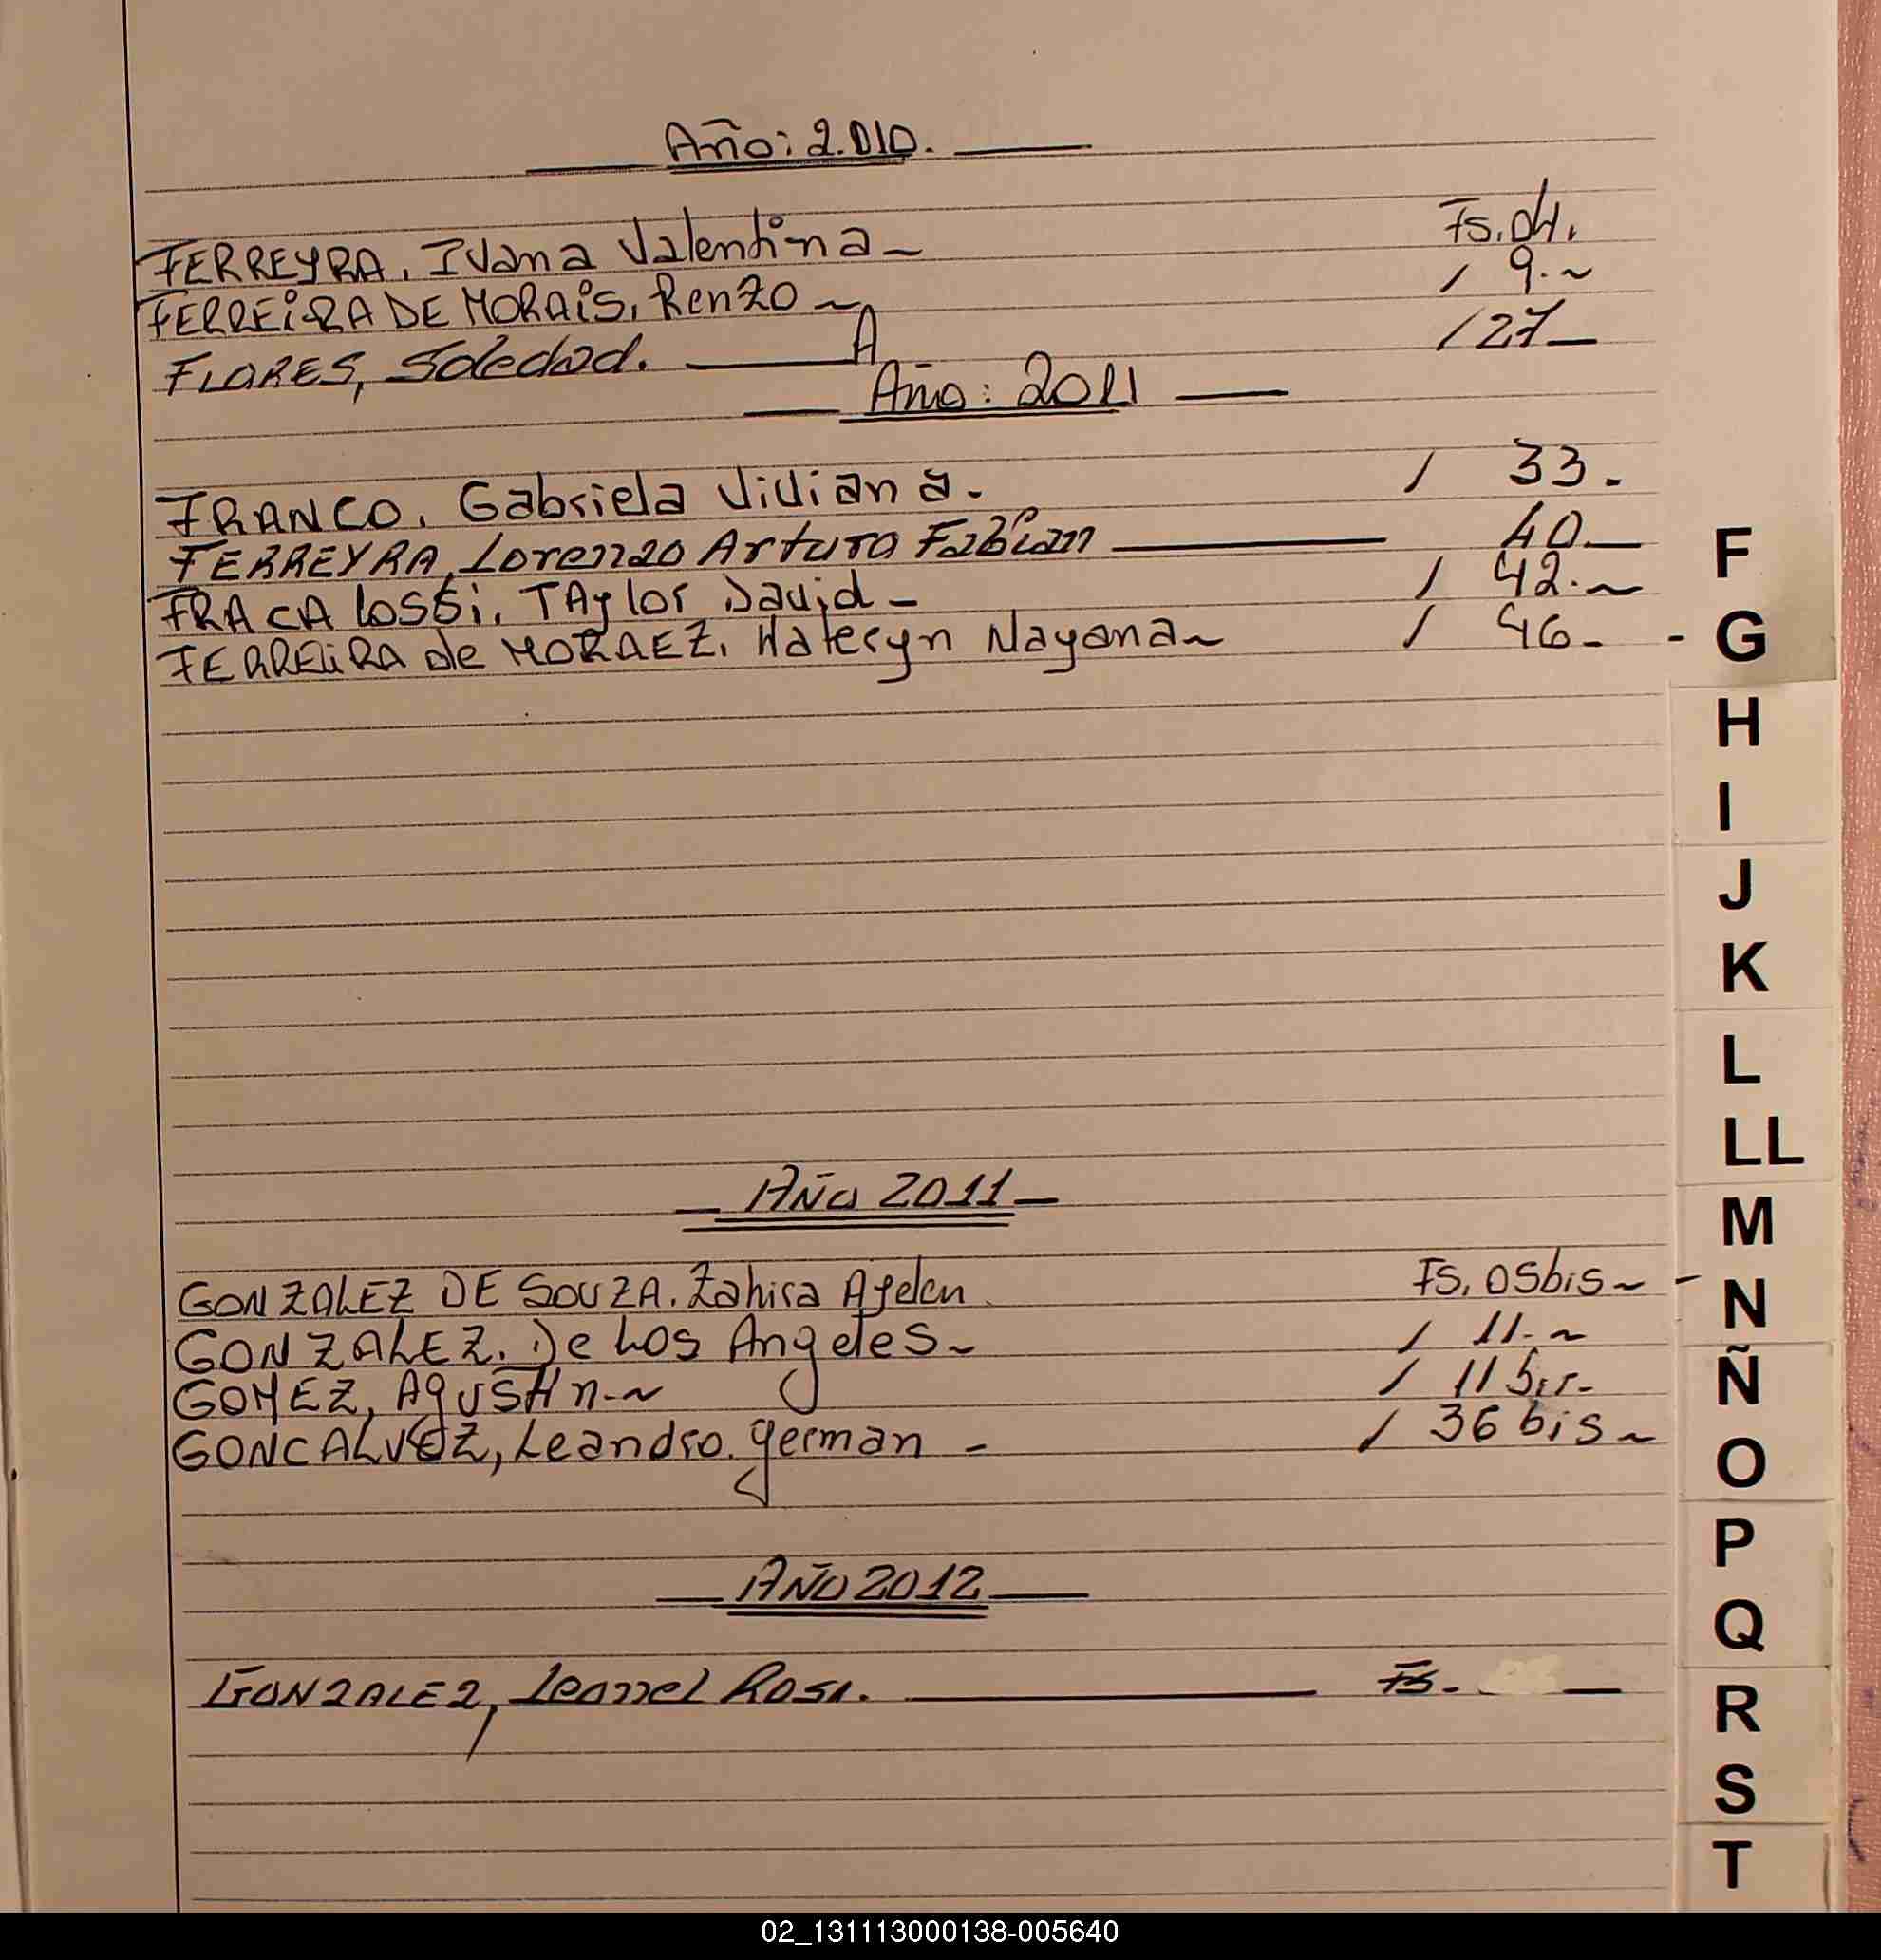 Año: 2.010.
FERREYRA, Ivana Valentina ~ Fs. 04.
FERREIRA DE MORAIS, Renzo ~ / 9. ~
FLORES, Soledad. / 27
Año: 2011
FRANCO, Gabriela Viviana. / 33.
FERREYRA, Lorenzo Arturo Fabian 40
FRACALOSSi, TAylor David - / 42. ~
FERREIRA de MORAEZ, Kateryn Nayana ~ / 46. -
F
G
H
I
J
K
L
LL
M
N
Ñ
O
P
Q
R
S
T
AÑO 2011
GONZALEZ DE SOUZA, Zahira Ayelen Fs. 05bis ~ -
GONZALEZ, De Los Angeles ~ / 11. ~
GOMEZ, AgUStin ~ / 11 bis -
GONCALVEZ, Leandro German - / 36 bis ~
AÑO 2012
GONZALEZ, Leonel Fs.
02_131113000138-005640